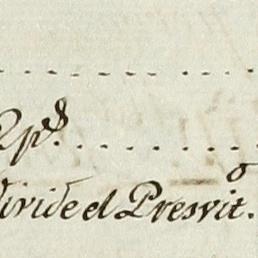 Rp.s
divide el Presvit.o